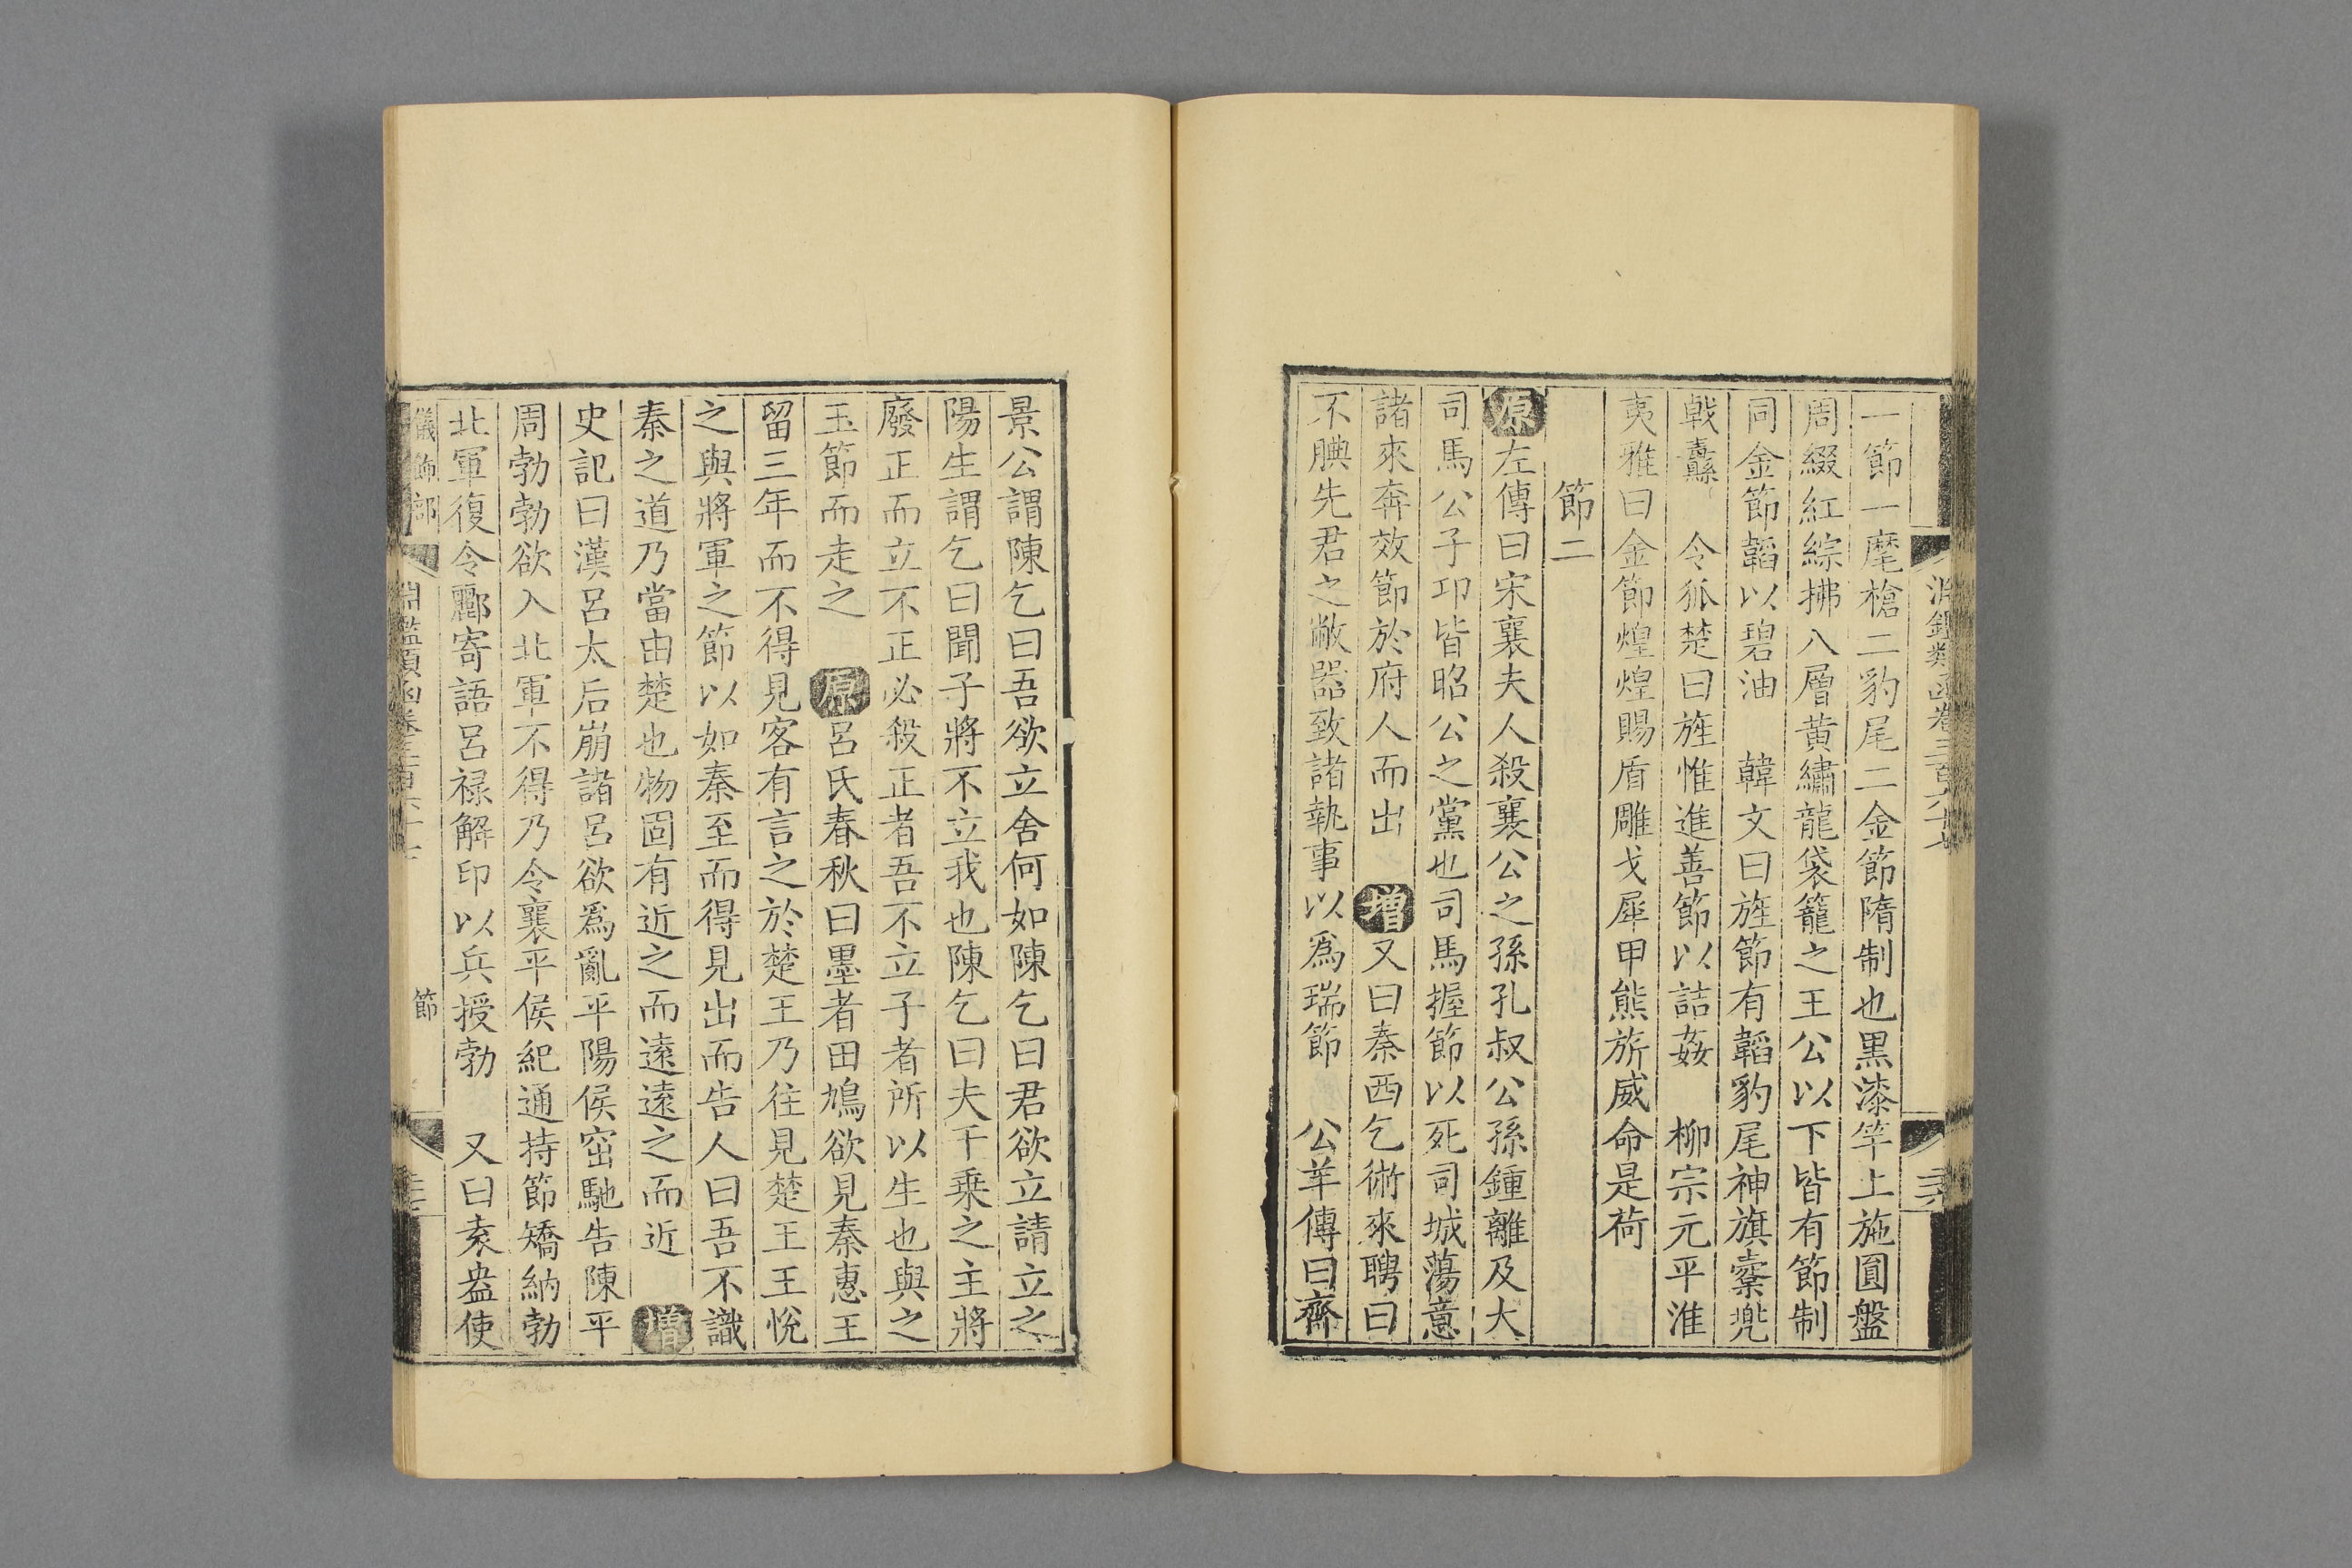 淵鑑類函卷三百六十七
一節一麾槍二豹尾二金節隋制也黒漆竿上施圓盤
周綴紅綜拂八層黄繡龍袋籠之王公以下皆有節制
同金節韜以碧油　韓文曰旌節有韜豹尾神旗櫜兠
戟纛　令狐楚曰旌惟進善節以詰姦　柳宗元平淮
夷雅曰金節煌煌賜盾雕戈犀甲熊旂威命是荷
節二
原左傳曰宋襄夫人殺襄公之孫孔叔公孫鍾離及大
司馬公子卬皆昭公之黨也司馬握節以死司城蕩意
諸來奔效節於府人而出　增又曰秦西乞術來聘曰
不腆先君之敝器致諸執事以爲瑞節　公羊傳曰齊
景公謂陳乞曰吾欲立舍何如陳乞曰君欲立請立之
陽生謂乞曰聞子將不立我也陳乞曰夫千乗之主將
廢正而立不正必殺正者吾不立子者所以生也與之
玉節而走之　原呂氏春秋曰墨者田鳩欲見秦惠王
留三年而不得見客有言之於楚王乃往見楚王王悅
之與將軍之節以如秦至而得見出而告人曰吾不識
秦之道乃當由楚也物固有近之而遠遠之而近　增
史記曰漢呂太后崩諸呂欲爲亂平陽侯窋馳告陳平
周勃勃欲入北軍不得乃令襄平侯紀通持節矯納勃
北軍復令酈寄語呂禄解印以兵授勃　又曰袁盎使
儀飾部
淵鑑類函卷三百六十七
節